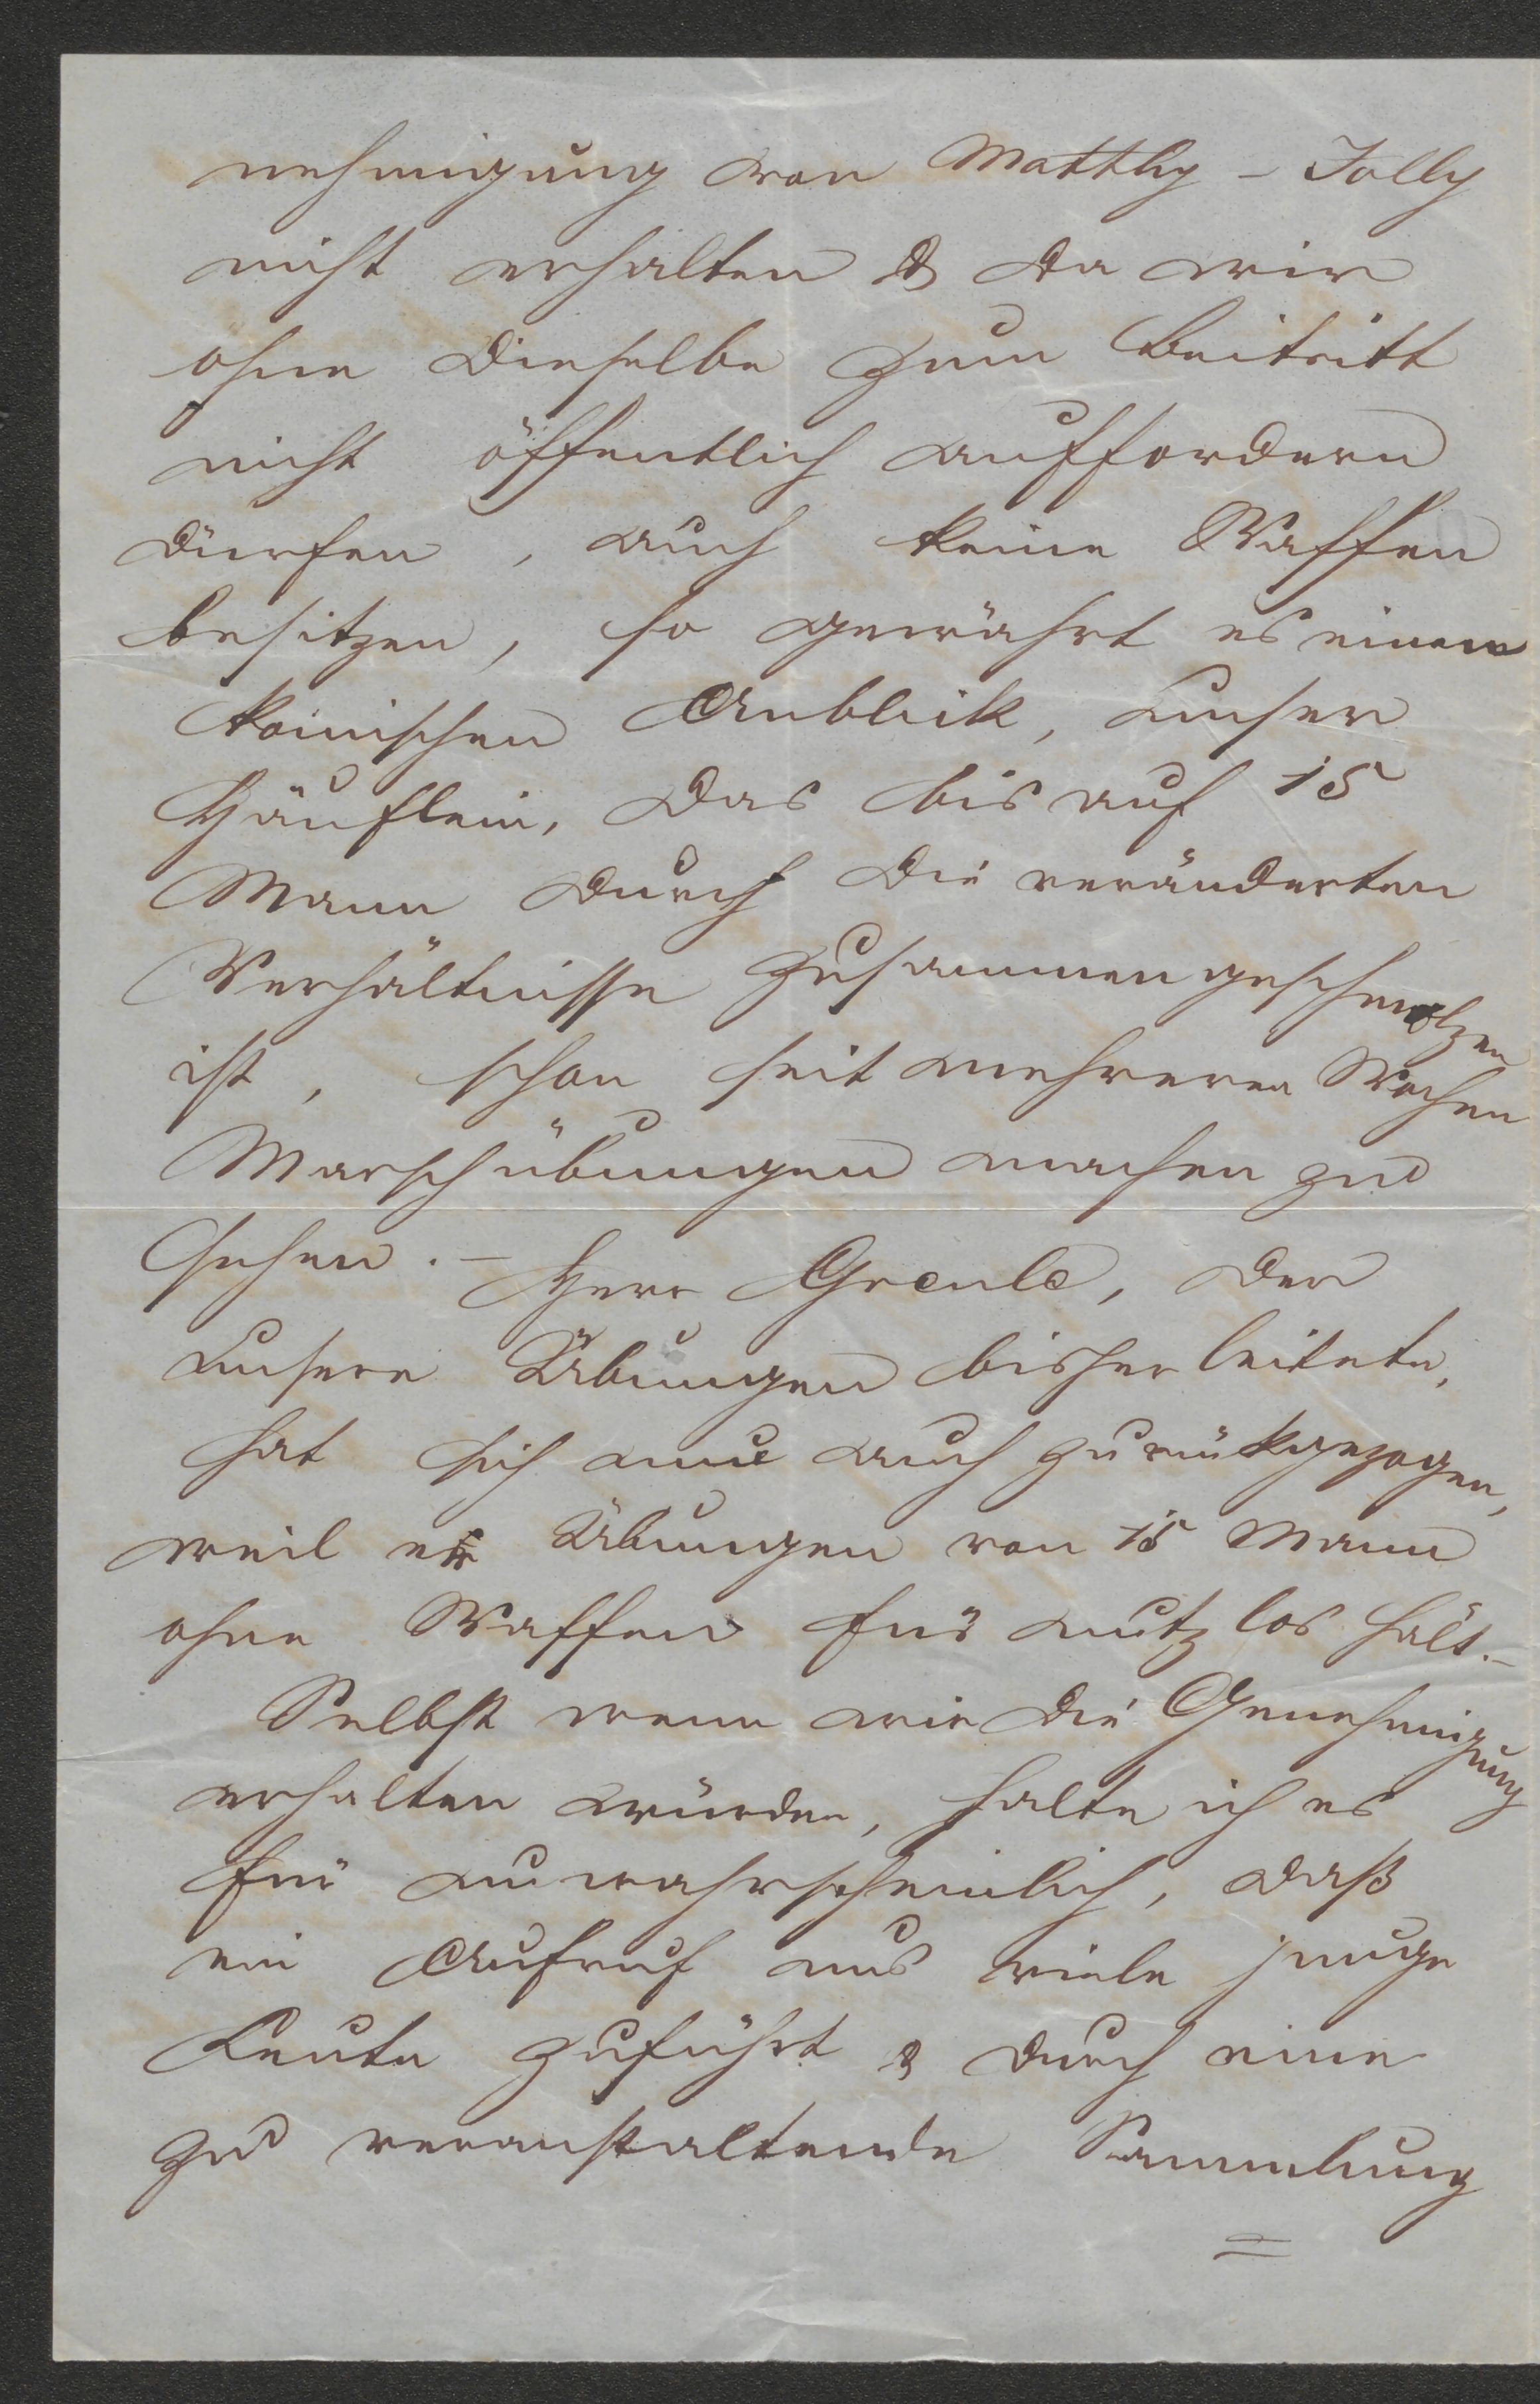 nehmigung von Matthy - Jolly
nicht erhalten & da wir
ohne dieselbe zum Beitritt
nicht öffentlich auffordern
dürfen, auch keine Waffen
besitzen, so gewährt es einen
komischen Anblick, unser
Häuflein, das bis auf 15
Mann durch die veränderten
Verhältnisse zusammengeschmolzen
ist, schon seit mehreren Wochen
Marschübungen machen zu
sehen. - Herr Greule, der
unsere Übungen bisher leitete,
hat sich nun auch zurückgezogen,
weil er Übungen von 15 Mann
ohne Waffen für nutzlos hält. -
Selbst wenn wir die Genehmigung
erhalten würden, halte ich es
für unwahrscheinlich, daß
ein Aufruf uns viele junge
Leute zuführt & durch eine
zu veranstaltende Sammlung
=